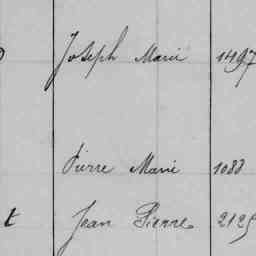 Joseph Marie 1497
Pierre Marie 1088
t Jean Pierre 2125